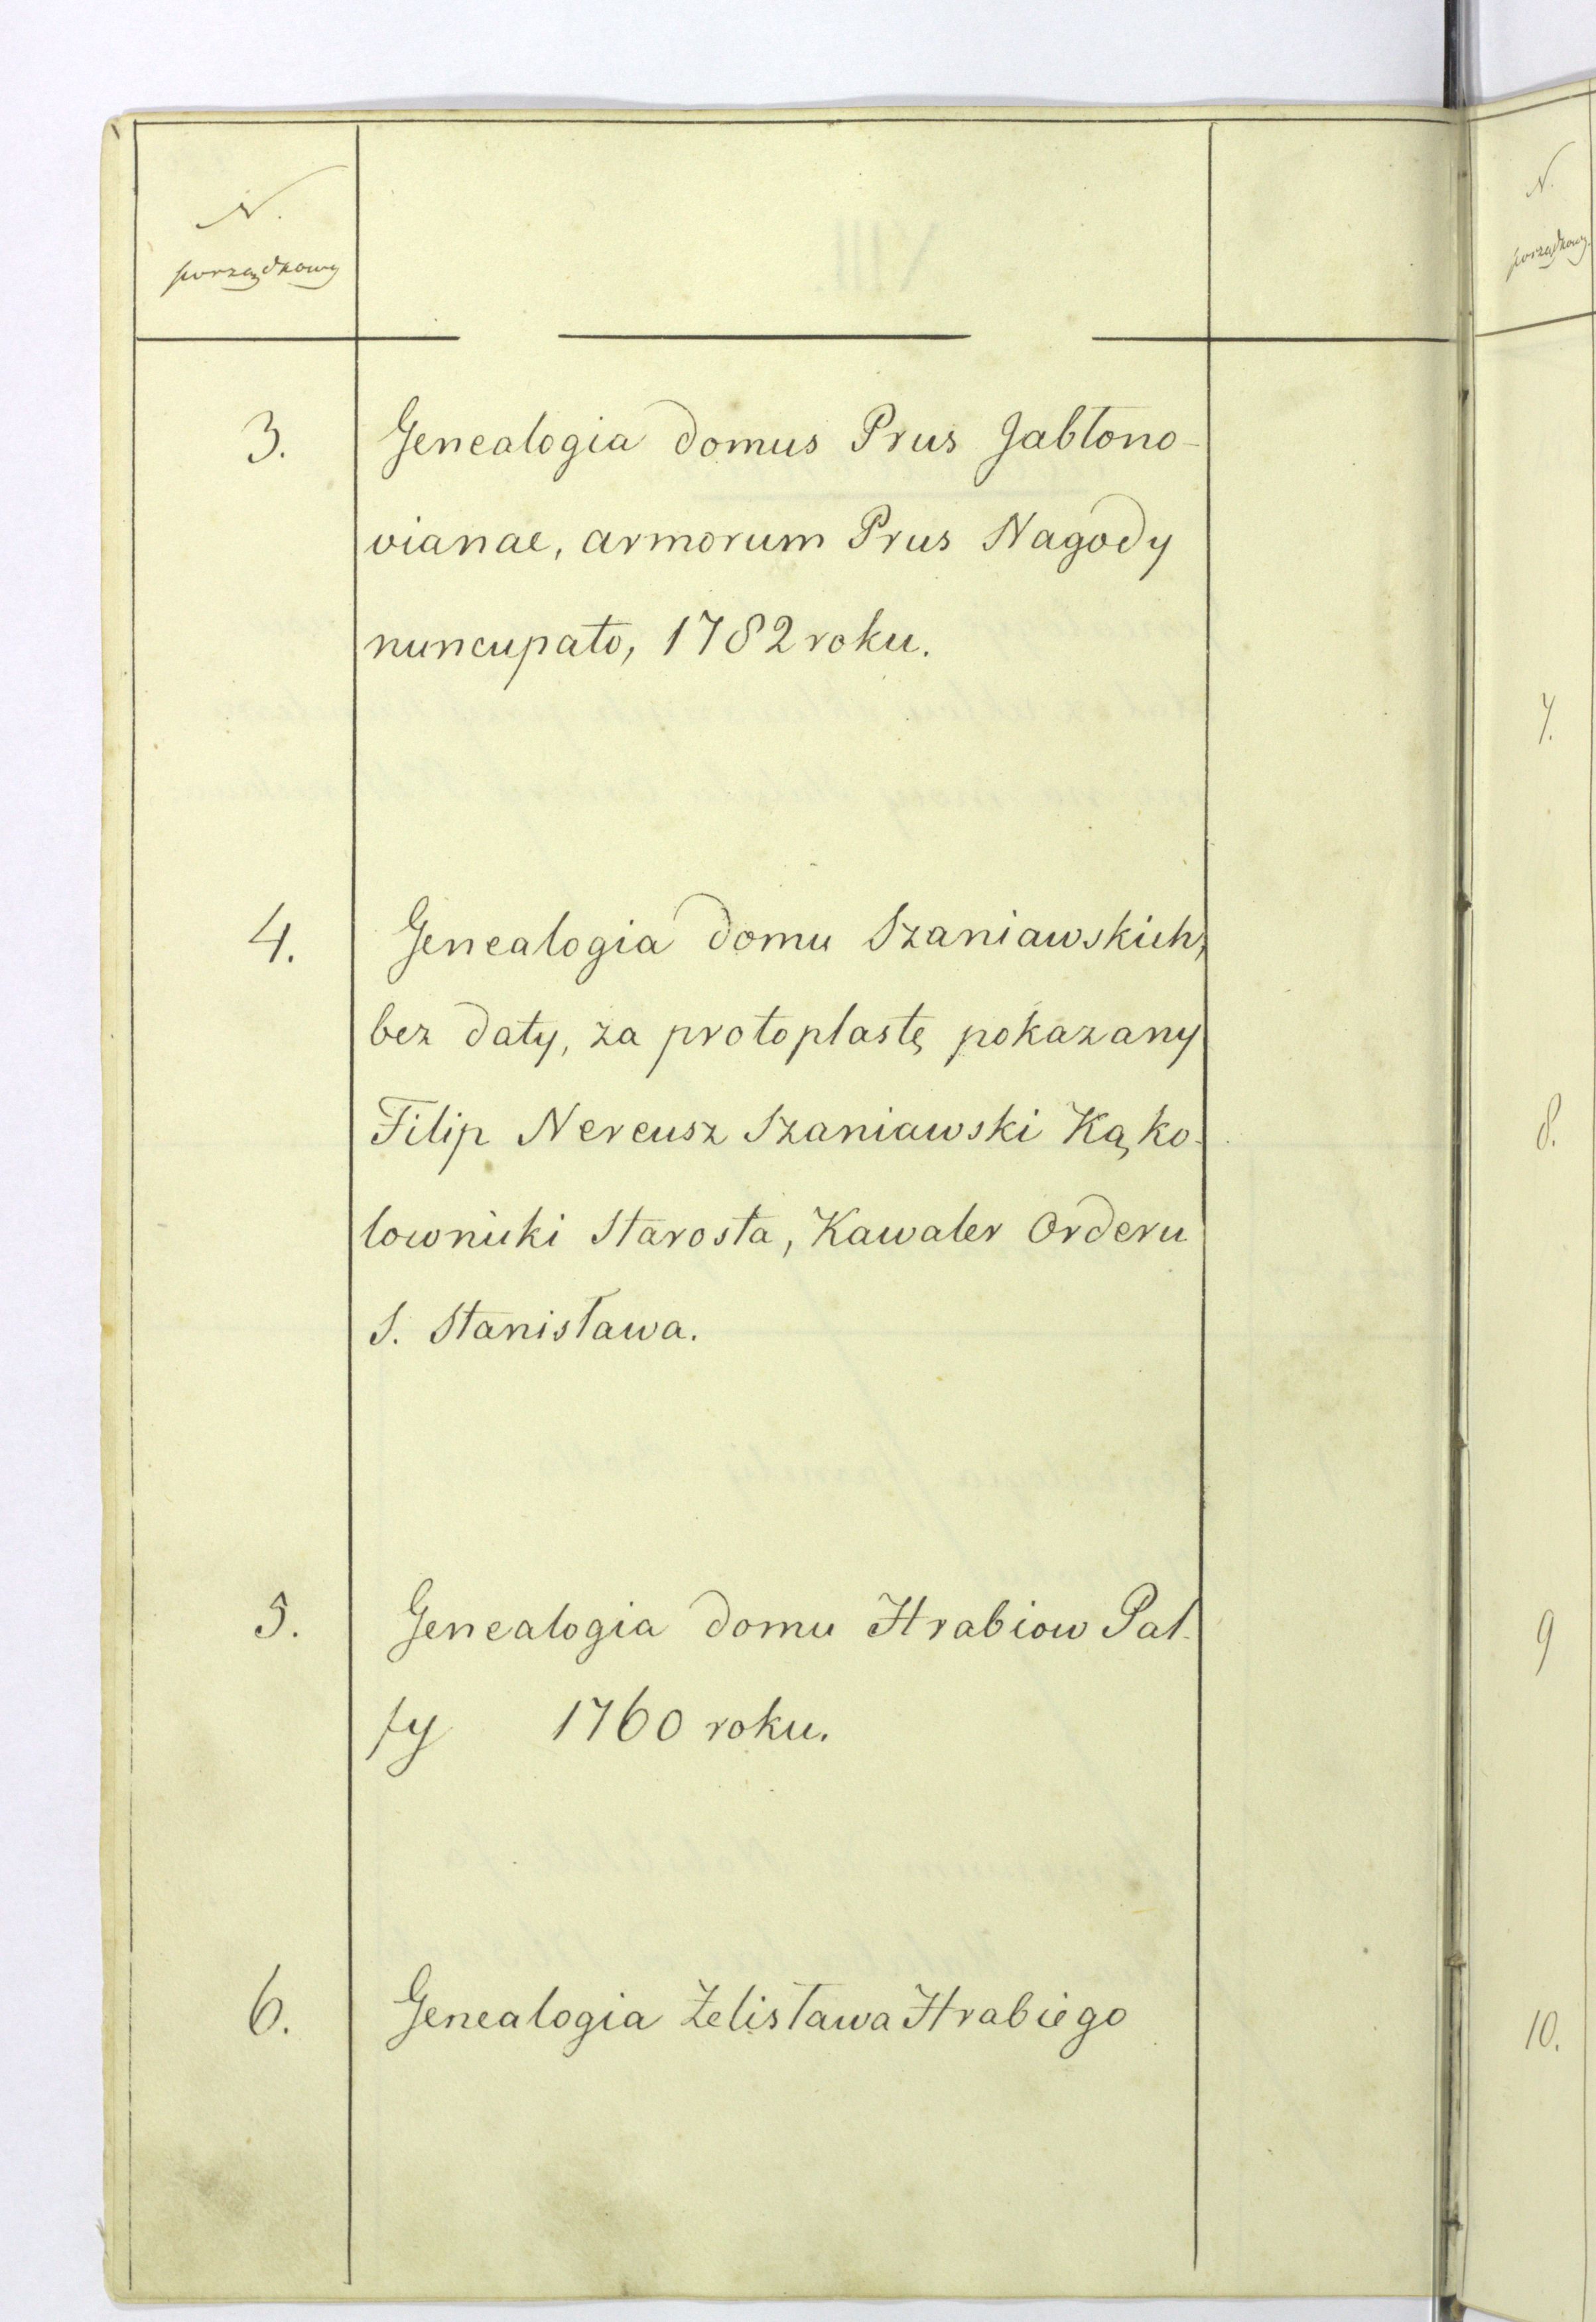 N.
porządkowy
3.
Genealogia domus Prus Jabłono-
vianae, armorum Prus Nagody
nuncupato, 1782 roku.
4.
Genealogia domu Szaniawskich,
bez daty, za protoplastę pokazany
Filip Nereusz Szaniawski Kąko-
lownicki Starosta, Kawaler Orderu
S. Stanisława.
5.
Genealogia domu Hrabiow Pal-
fy 1760 roku.
6.
Genealogia Żelisława Hrabiego
N.
porządkowy.
7.
8.
9
10.